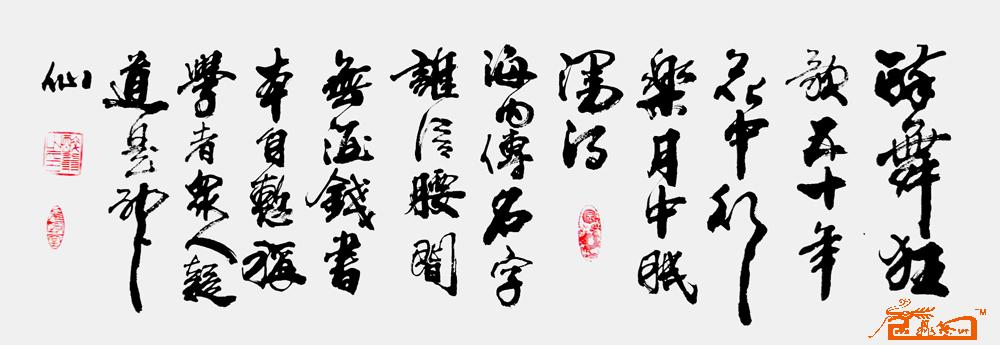 醉舞狂
歌五十年
花中行
樂月中眠
漫得
海內傳名字
誰信腰間
無酒錢書
本自慙稱
學者眾人疑
道是神
仙